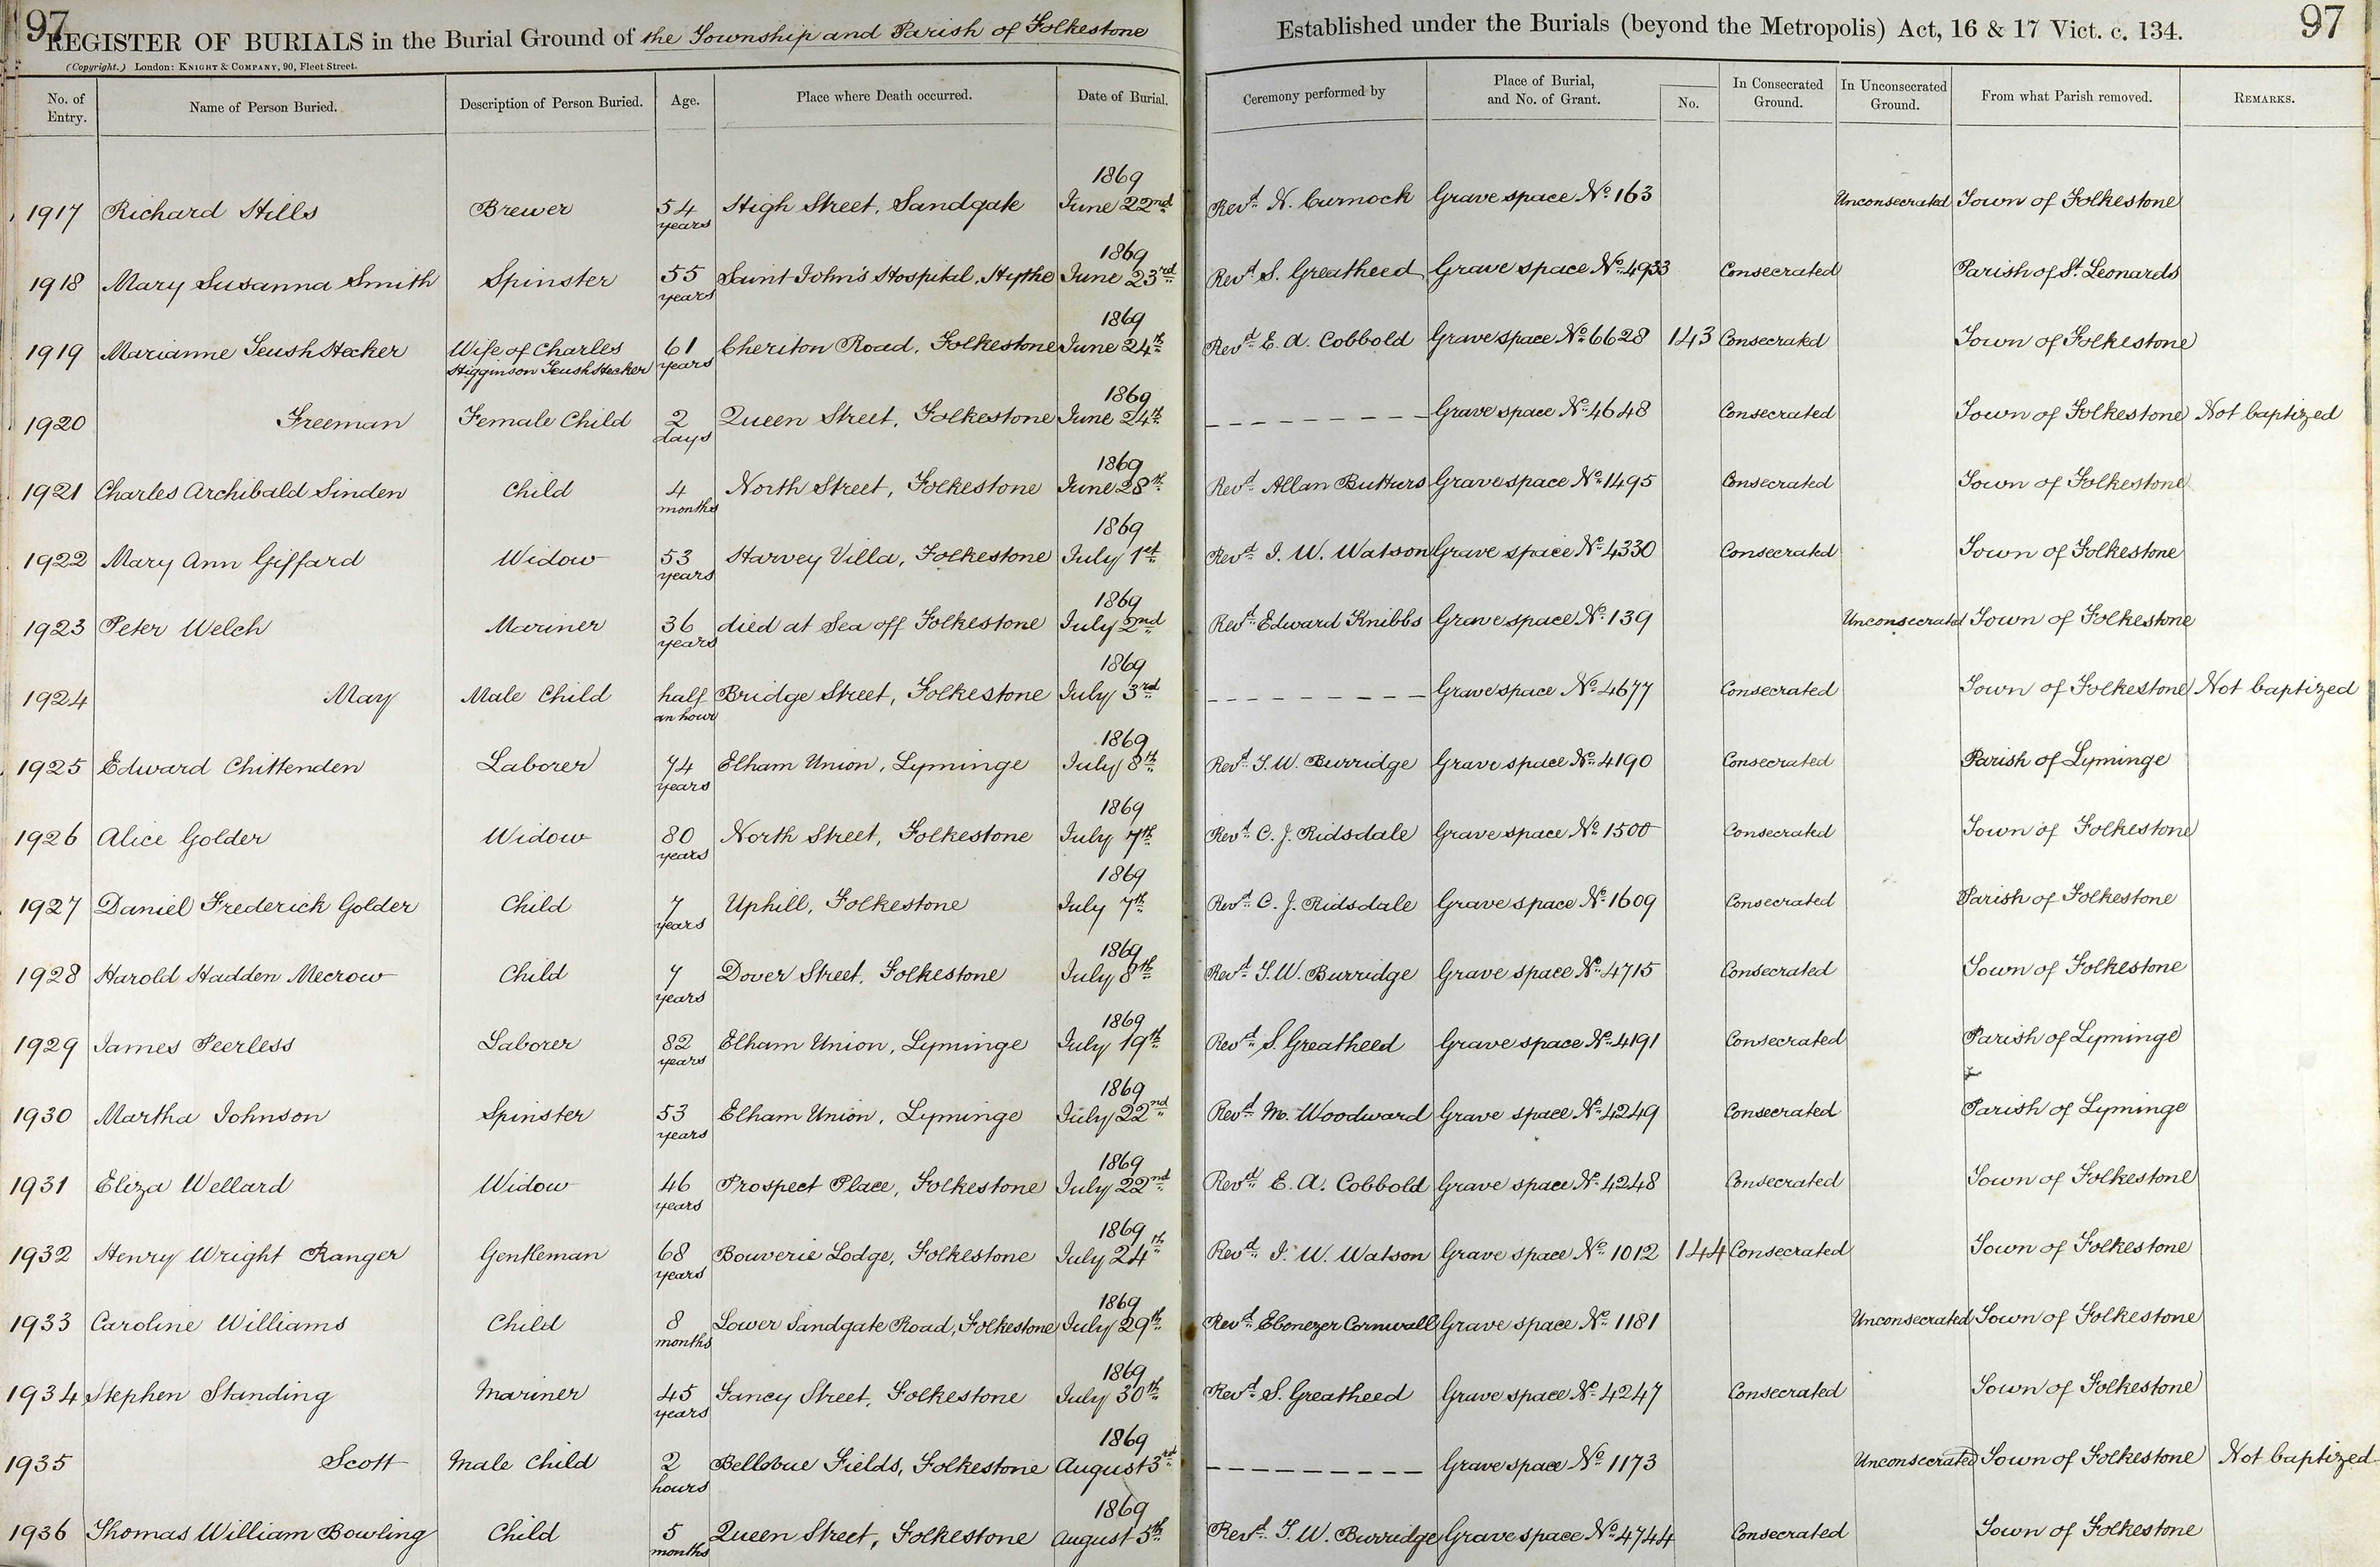 97
97
REGISTER OF BURIALS in the Burial Ground of the Township and Parish of Folkestone
Established under the Burials (beyond the Metropolis) Act, 16 & 17 Vict. c. 134.
(Copyright.) London: KNIGHT & COMPANY, 90, Fleet Street.
No. of Entry. Name of Person Buried. Description of Person Buried. Age. Place where Death occurred. Date of Burial. Ceremony performed by Place of Burial, and No. of Grant. No. In Consecrated Ground. In Unconsecrated Ground. From what Parish removed. REMARKS.
1917 Richard Hills Brewer 54 years High Street, Sandgate 1869 June 22nd Revd. N. Curnock Grave space No. 163 Unconsecrated Town of Folkestone
1918 Mary Susanna Smith Spinster 55 years Saint John's Hospital, Hythe 1869 June 23rd Revd. S. Greatheed Grave space No. 4933 Consecrated Parish of St. Leonards
1919 Marianne Teush Hecker Wife of Charles Higginson Teush Hecker 61 years Cheriton Road, Folkestone 1869 June 24th Revd. E. A. Cobbold Grave space No. 6628 143 Consecrated Town of Folkestone
1920 Freeman Female Child 2 days Queen Street, Folkestone 1869 June 24th Grave space No. 4648 Consecrated Town of Folkestone Not baptized
1921 Charles Archibald Sinden Child 4 months North Street, Folkestone 1869 June 28th Revd. Allan Butturs Grave space No. 1495 Consecrated Town of Folkestone
1922 Mary Ann Giffard Widow 53 years Harvey Villa, Folkestone 1869 July 1st Revd. J. W. Watson Grave space No. 4330 Consecrated Town of Folkestone
1923 Peter Welch Mariner 36 years died at Sea off Folkestone 1869 July 2nd Revd. Edward Knibbs Grave space No. 139 Unconsecrated Town of Folkestone
1924 May Male Child half an hour Bridge Street, Folkestone 1869 July 3rd Grave space No. 4677 Consecrated Town of Folkestone Not baptized
1925 Edward Chittenden Laborer 74 years Elham Union, Lyminge 1869 July 8th Revd. T. W. Burridge Grave space No. 4190 Consecrated Parish of Lyminge
1926 Alice Golder Widow 80 years North Street, Folkestone 1869 July 7th Revd. C. J. Ridsdale Grave space No. 1500 Consecrated Town of Folkestone
1927 Daniel Frederick Golder Child 7 years Uphill, Folkestone 1869 July 7th Revd. C. J. Ridsdale Grave space No. 1609 Consecrated Parish of Folkestone
1928 Harold Hadden Mecrow Child 7 years Dover Street, Folkestone 1869 July 8th Revd. T. W. Burridge Grave space No. 4715 Consecrated Town of Folkestone
1929 James Peerless Laborer 82 years Elham Union, Lyminge 1869 July 19th Revd. S. Greatheed Grave space No. 4191 Consecrated Parish of Lyminge
1930 Martha Johnson Spinster 53 years Elham Union, Lyminge 1869 July 22nd Revd. M. Woodward Grave space No. 4249 Consecrated Parish of Lyminge
1931 Eliza Wellard Widow 46 years Prospect Place, Folkestone 1869 July 22nd Revd. E. A. Cobbold Grave space No. 4248 Consecrated Town of Folkestone
1932 Henry Wright Ranger Gentleman 68 years Bouverie Lodge, Folkestone 1869 July 24th Revd. J. W. Watson Grave space No. 1012 144 Consecrated Town of Folkestone
1933 Caroline Williams Child 8 months Lower Sandgate Road, Folkestone 1869 July 29th Revd. Ebenezer Cornwall Grave space No. 1181 Unconsecrated Town of Folkestone
1934 Stephen Standing Mariner 45 years Fancy Street, Folkestone 1869 July 30th Revd. S. Greatheed Grave space No. 4247 Consecrated Town of Folkestone
1935 Scott Male Child 2 hours Bellevue Fields, Folkestone 1869 August 3rd Grave space No. 1173 Unconsecrated Town of Folkestone Not baptized
1936 Thomas William Bowling Child 5 months Queen Street, Folkestone 1869 August 5th Revd. T. W. Burridge Grave space No. 4744 Consecrated Town of Folkestone